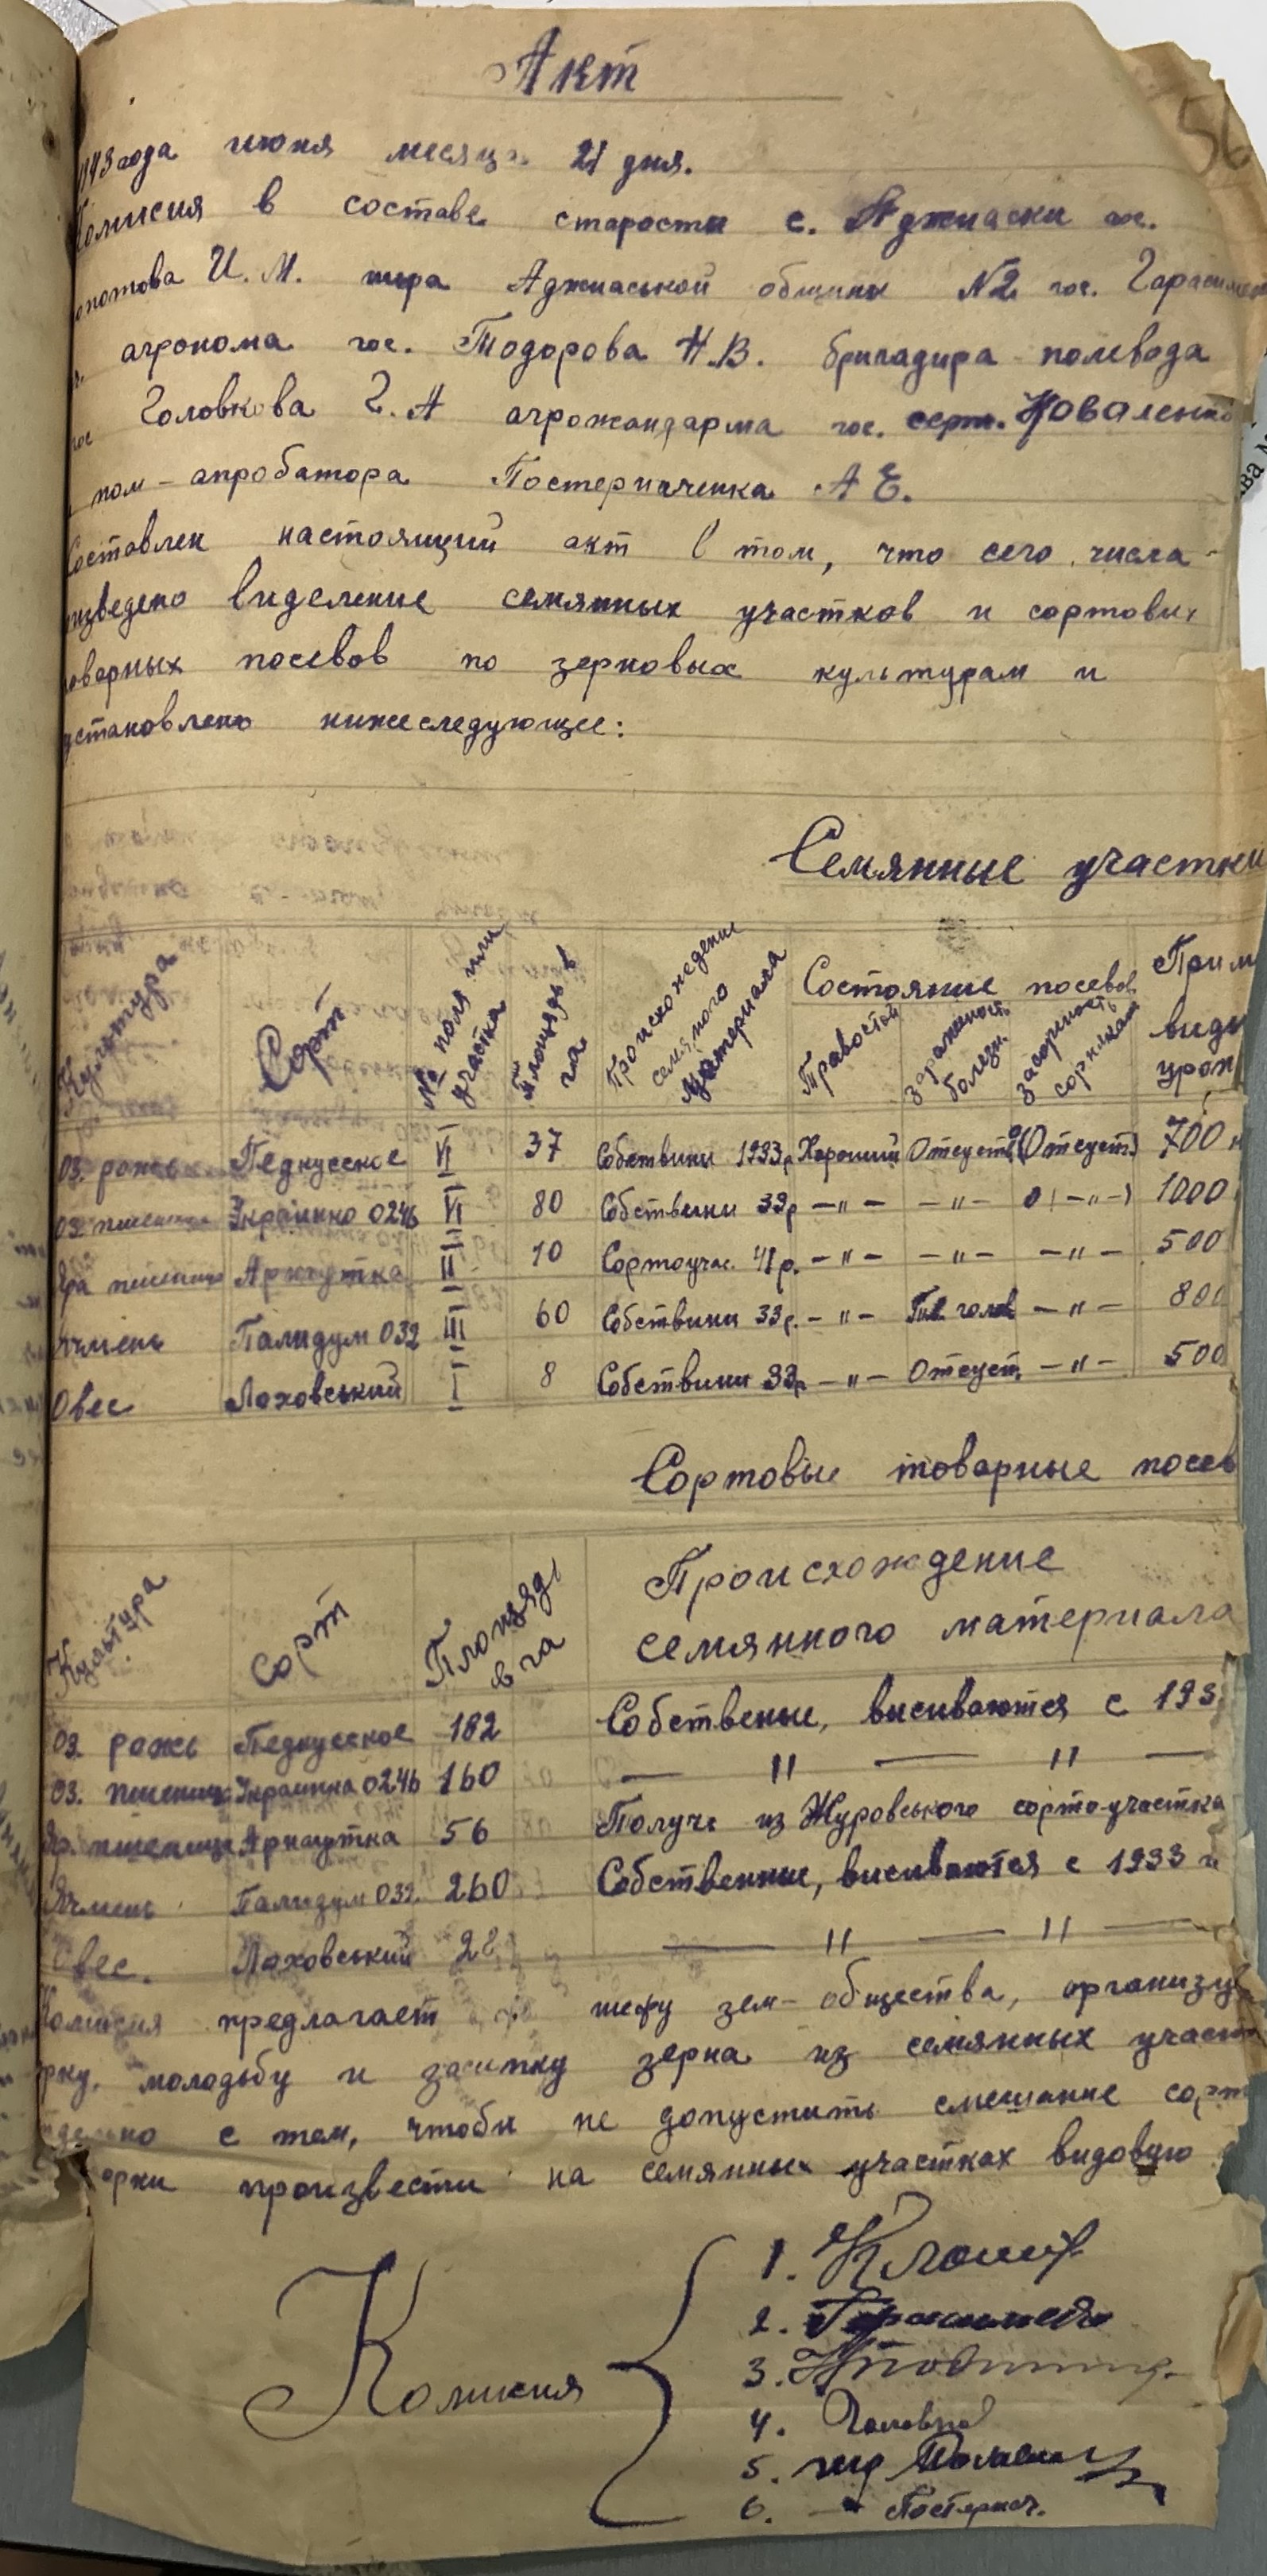 Акт
56
1943 года июня месяца 21 дня.
Комисия в составе старости с. Аджиаски гос.
И. М. шефа Аджиаськой общины №2 гос.
агронома гос. Тодорова Н.В. бригадира полевода
гос Головкова Г. А агрожандарма гос. серж. Коваленко
пом-апробатора Постерначенка А Е.
Составлен настоящий акт в том, что сего числа
виделение семянных участков и сортових
посевов по зерновых культурам и
установлено нижеследующее:
Семянные участки
Культура Сорт № поля или участка Площадь в га Происхождение семяного материала Состояние посевов
Травостой зараженость болезн. засореность сорняками
оз. рожь VI 37 Собствини 1933р Хороший Отсутств. 0(Отсутст.) 700
оз. пшеница Украинка 0246 VI 80 Собствини 33р -"- -"- 0(-"-) 1000
яра пшеница Арнаутка II 10 Сортоучас. 41р. -"- -"- -"- 500
Ячмень Палидум 032 III 60 Собствини 33р. -"- -"- 800
Овес Лоховський I 8 Собствини 33р -"- Отсутст. -"- 500
Сортовые товарные посев
Культура Сорт Площадь в га Происхождение
семянного материала
оз. рожь 182 Собственые, висиваются с 193
оз. пшеница Украинка 0246 160 — " — " —
яр. пшеница Арнаутка 56 Получ. из Журовського сорто-участка
Ячмень Палидум 032 260 Собственные, висиваются с 1933
Овес. Лоховський 28 — " — " —
Комисия предлагает шефу зем-общества,
молодьбу и засипку зерна из семянных
с тем, чтоби не допустить смешание
произвести на семянных участках видовую
Комисия
1.
2.
3.
4. Головков
5.
6. Постернач.